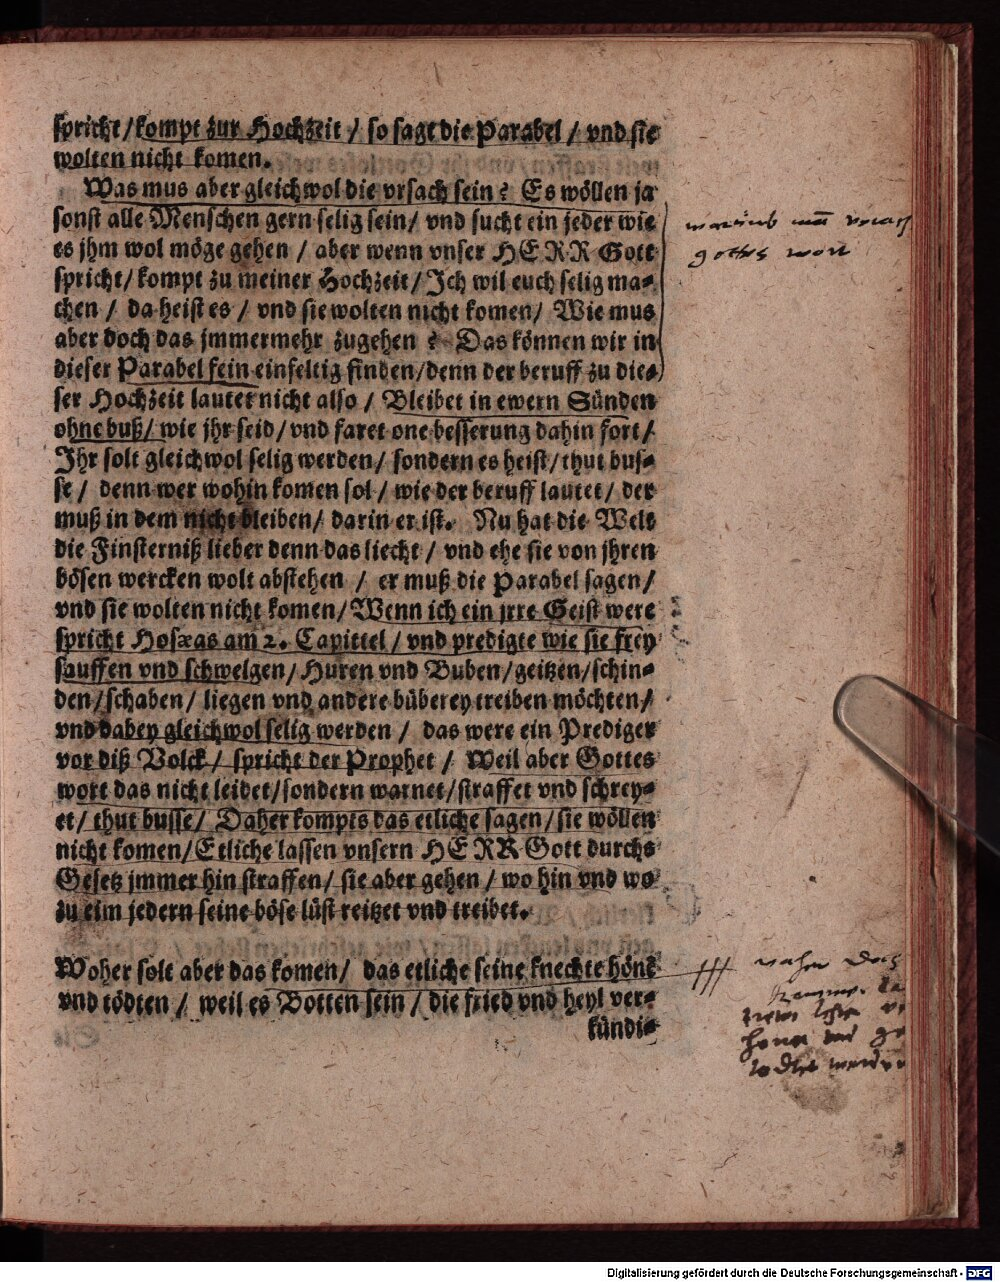 spricht / kompt zur Hochzeit / so sagt die Parabel / vnd sie
wolten nicht komen.
Was mus aber gleichwol die vrsach sein? Es wöllen ja
sonst alle Menschen gern selig sein / vnd sucht ein jeder wie
es jhm wol möge gehen / aber wenn vnser HERR Gott
spricht / kompt zu meiner Hochzeit / Jch wil euch selig ma-
chen / da heist es / vnd sie wolten nicht komen / Wie mus
aber doch das jmmermehr zugehen? Das können wir in
dieser Parabel fein einfeltig finden / denn der beruff zu die-
ser Hochzeit lautet nicht also / Bleibet in ewern Sünden
ohne buß / wie jhr seid / vnd faret one besserung dahin fort /
Jhr solt gleichwol selig werden / sondern es heist / thut bus-
se / denn wer wohin komen sol / wie der beruff lautet / der
muß in dem nicht bleiben / darin er ist. Nu hat die Welt
die Finsterniß lieber denn das liecht / vnd ehe sie von jhren
bösen wercken wolt abstehen / er muß die Parabel sagen /
vnd sie wolten nicht komen / Wenn ich ein jrre Geist were
spricht Hoseas am 2. Capittel / vnd predigte wie sie frey
sauffen vnd schwelgen / Huren vnd Buben / geitzen / schin-
den / schaben / liegen vnd andere büberey treiben möchten /
vnd dabey gleichwol selig werden / das were ein Prediger
vor diß Volck / spricht der Prophet / Weil aber Gottes
wort das nicht leidet / sondern warnet / straffet vnd schrey-
et / thut busse / Daher kompts das etliche sagen / sie wöllen
nicht komen / Etliche lassen vnsern HERR Gott durchs
Gesetz jmmer hin straffen / sie aber gehen / wo hin vnd wo
zu eim jedern seine böse lüst reitzet vnd treibet.
Woher solt aber das komen / das etliche seine knechte höne
vnd tödten / weil es Botten sein / die fried vnd heyl ver-
kündi-
gottes wort
Digitalisierung gefördert durch die Deutsche Forschungsgemeinschaft - DFG